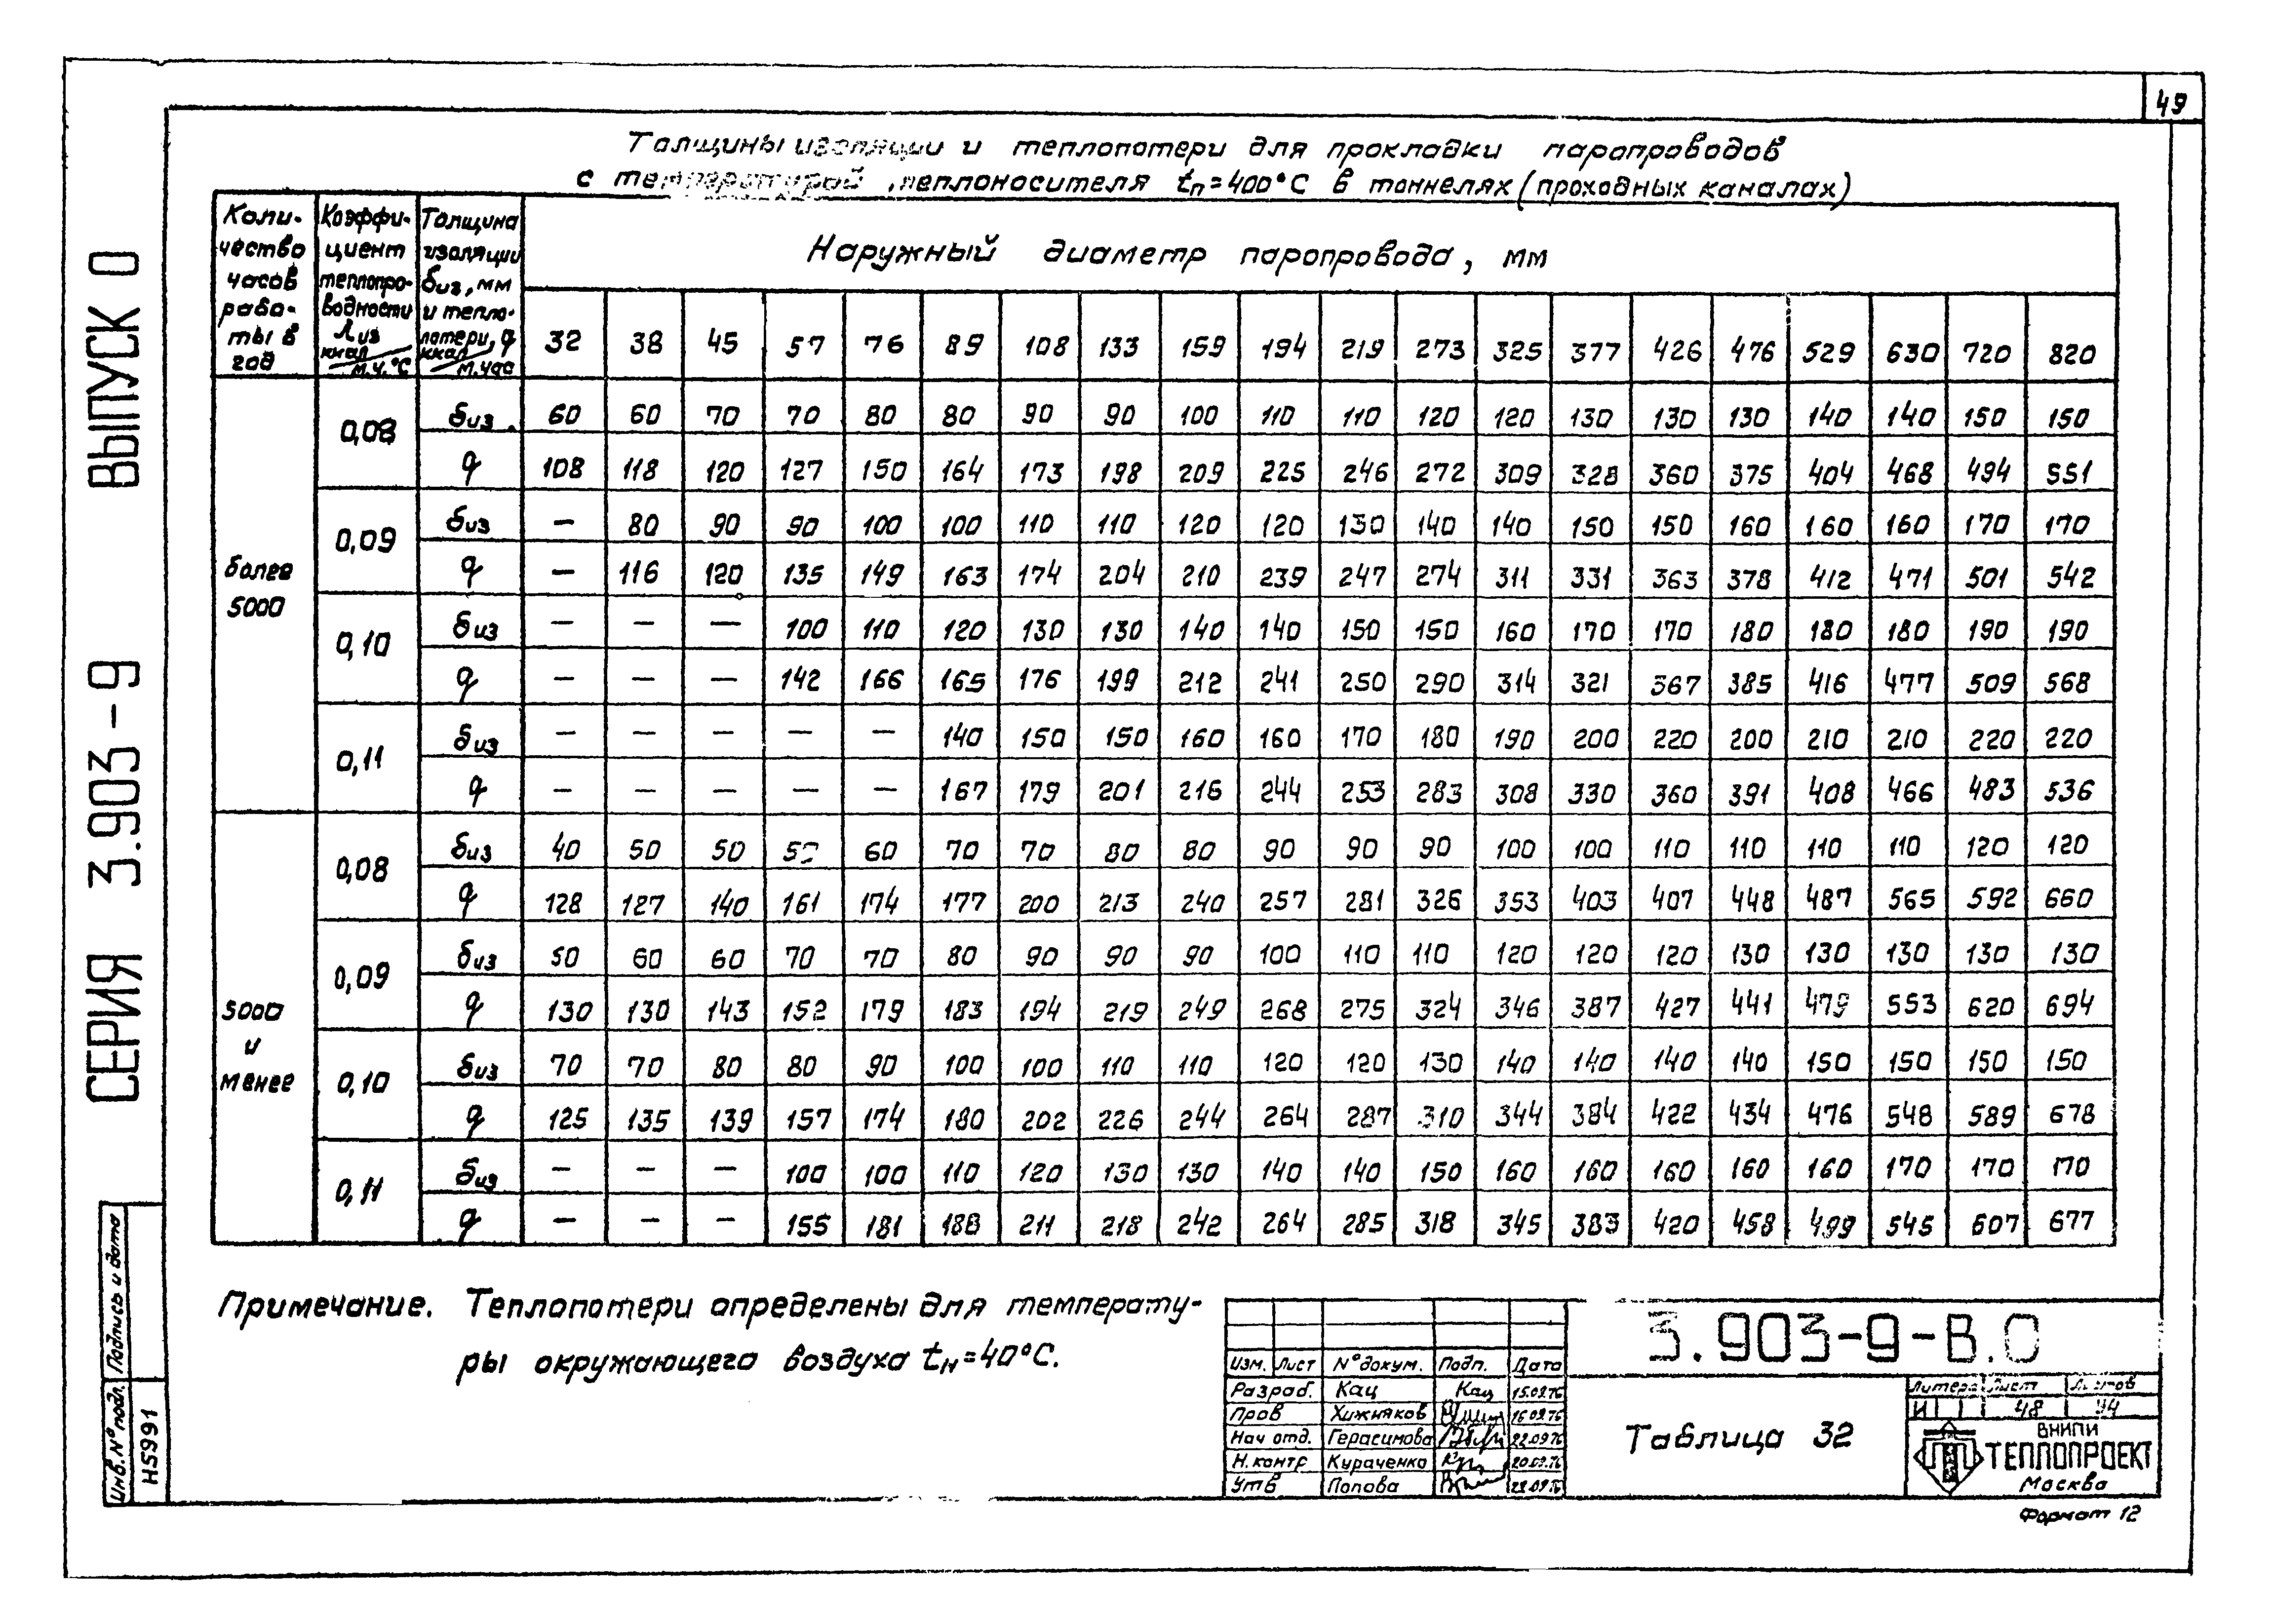 49
Толщины изоляции и теплопотери для прокладки паропроводов
с температурой теплоносителя tп=400°С в тоннелях (проходных каналах)
Коли-
чество
часов
рабо-
ты в
год
Коэффи-
циент
теплопро-
водности
λиз
ккал
м.ч.°С
Толщина
изоляции
δиз, мм
и тепло-
потери, q
ккал
м.час
Наружный диаметр паропровода, мм
32 38 45 57 76 89 108 133 159 194 219 273 325 377 426 476 529 630 720 820
более
5000
0,08
δиз. 60 60 70 70 80 80 90 90 100 110 110 120 120 130 130 130 140 140 150 150
q 108 118 120 127 150 164 173 198 209 225 246 272 309 328 360 375 404 468 494 551
0,09
δиз — 80 90 90 100 100 110 110 120 120 130 140 140 150 150 160 160 160 170 170
q — 116 120 135 149 163 174 204 210 239 247 274 311 331 363 378 412 471 501 542
0,10
δиз — — — 100 110 120 130 130 140 140 150 150 160 170 170 180 180 180 190 190
q — — — 142 166 165 176 199 212 241 250 290 314 321 367 385 416 477 509 568
0,11
δиз — — — — — 140 150 150 160 160 170 180 190 200 220 200 210 210 220 220
q — — — — — 167 179 201 216 244 253 283 308 330 360 391 408 466 483 536
5000
и
менее
0,08
δиз 40 50 50 60 70 70 80 80 90 90 90 100 100 110 110 110 110 120 120
q 128 127 140 161 174 177 200 213 240 257 281 326 353 403 407 448 487 565 592 660
0,09
δиз 50 60 60 70 70 80 90 90 90 100 110 110 120 120 120 130 130 130 130 130
q 130 130 143 152 179 183 194 219 249 268 275 324 346 387 427 441 479 553 620 694
0,10
δиз 70 70 80 80 90 100 100 110 110 120 120 130 140 140 140 140 150 150 150 150
q 125 135 139 157 174 180 202 226 244 264 287 310 344 384 422 434 476 548 589 678
0,11
δиз — — — 100 100 110 120 130 130 140 140 150 160 160 160 160 160 170 170 170
q — — — 155 181 188 211 218 242 264 285 318 345 383 420 458 499 545 607 677
Примечание. Теплопотери определены для температу-
ры окружающего воздуха tн=40°С.
СЕРИЯ 3.903-9 ВЫПУСК 0
Инв.№подл. Подпись и дата
Н5991
Изм. Лист №докум. Подп. Дата
Разраб. Кац Кац 15.09.76
Пров Хижняков 16.09.76
Нач отд. Герасимова 22.09.76
Н.контр Кураченко 20.09.76
Утв Попова 22.09.76
3.903-9-В.0
Таблица 32
Литера Лист Листов
И 48
ВНИПИ
ТЕПЛОПРОЕКТ
Москва
Формат 12